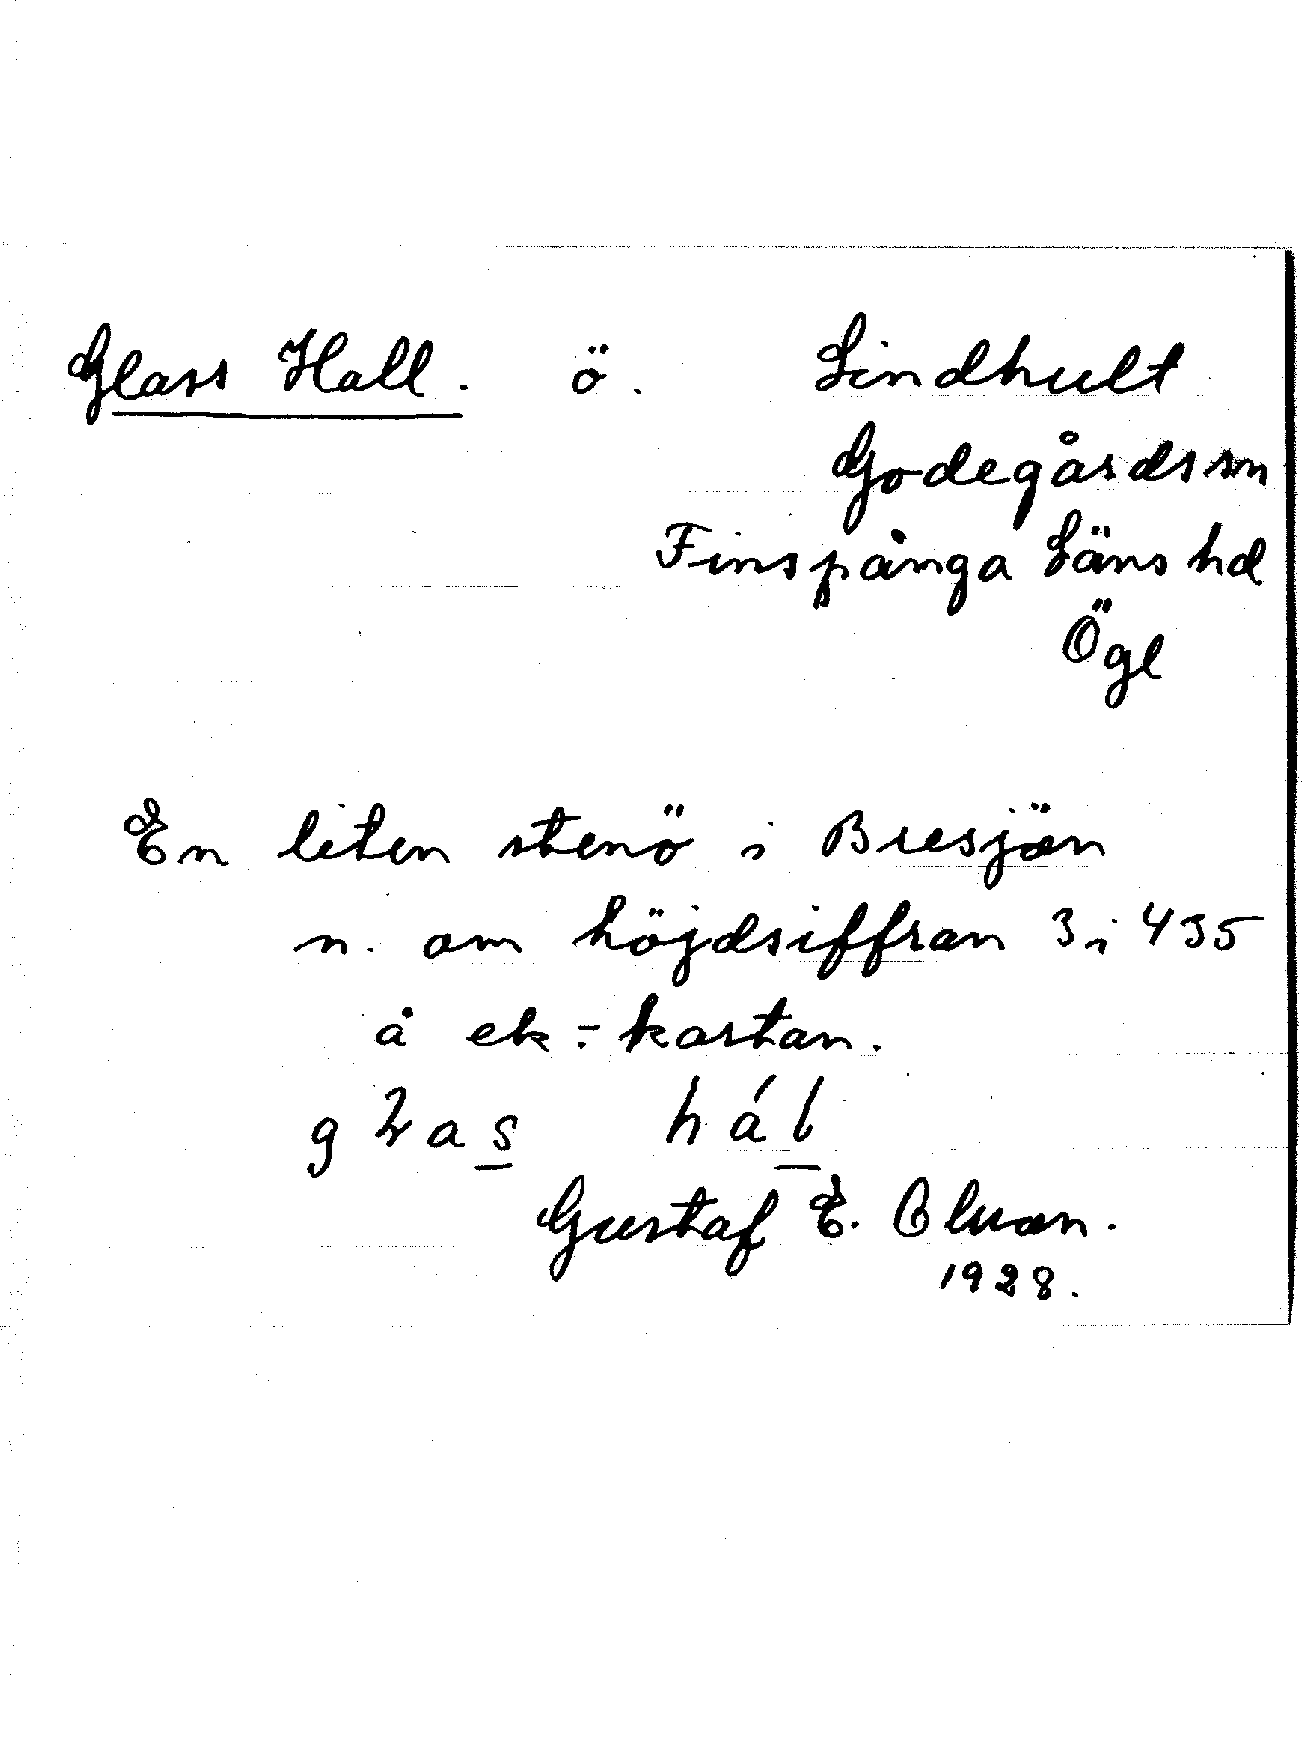 Glass Hall. ö. Lindhult
Godegårds sn
Finspånga Läns hd
Ögl
En liten stenö i Bresjön
n. om höjdsiffran 3 i 435
å ek:-kartan.
hál
Gustaf E. Olson.
1928.